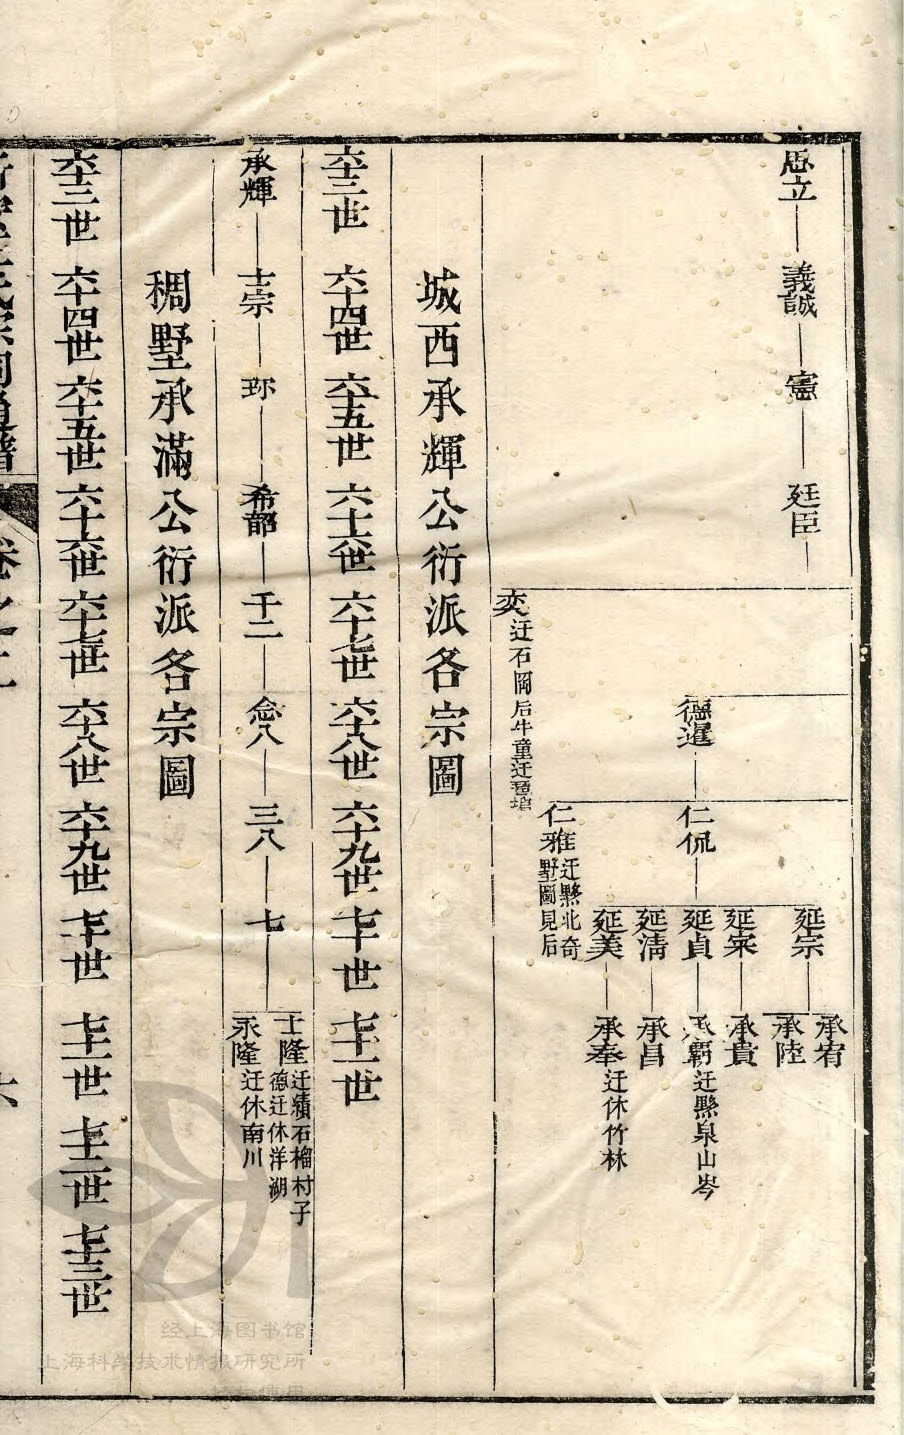 思立 義誠 憲 廷臣
承宥
延宗 承陸
延寀 承貴
德暹 仁侃 延貞 承霸 迁黟泉山岑
延清 承昌
延美 承奉 迁休竹林
仁雅 迁黟北奇
墅圖見后
奕 迁石岡后牛童迁
城西承輝公衍派各宗圖
六十三世 六十四世 六十五世 六十六世 六十七世 六十八世 六十九世 七十世 七十一世
承輝 士宗 珎 希部 千二 念八 三八 七
士隆 迁績石榴村子
德迁休洋湖
永隆 迁休南川
稠墅承滿公衍派各宗圖
六十三世 六十四世 六十五世 六十六世 六十七世 六十八世 六十九世 七十世 七十一世 七十二世 七十三世
经上海图书馆
上海科学技术情报研究所
授权使用